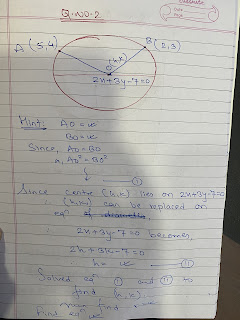 Q.NO.2
A (5,4)
B (2,3)
(h,k)
O
2x+3y-7=0
Hint: AO = r
BO = r
Since, AO = BO
or, AO² = BO²
①
Since centre (h,k) lies on 2x+3y-7=0
∴ (h,k) can be replaced on
eqⁿ of diameter.
∴ 2x+3y-7=0 becomes,
2h+3k-7=0
h= ②
Solved eqⁿ ① and ② to
find (h,k).
find
Find eqⁿ